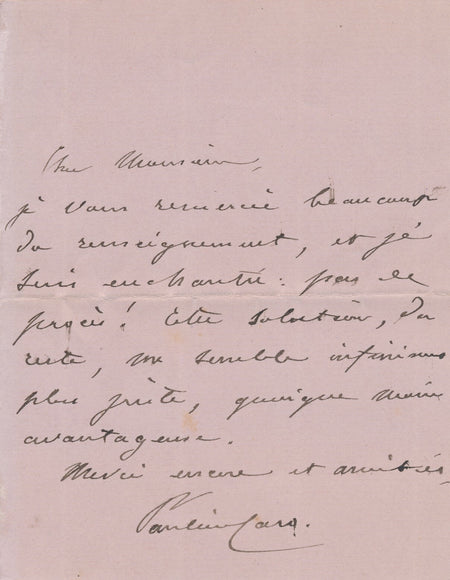 Cher Monsieur,
je vous remercie beaucoup
du renseignement, et je
suis enchanté : pas de
procès ! Cette solution, du
reste, me semble infiniment
plus juste, quoique moins
avantageuse.
Merci encore et amitiés,
Pauline Caro.